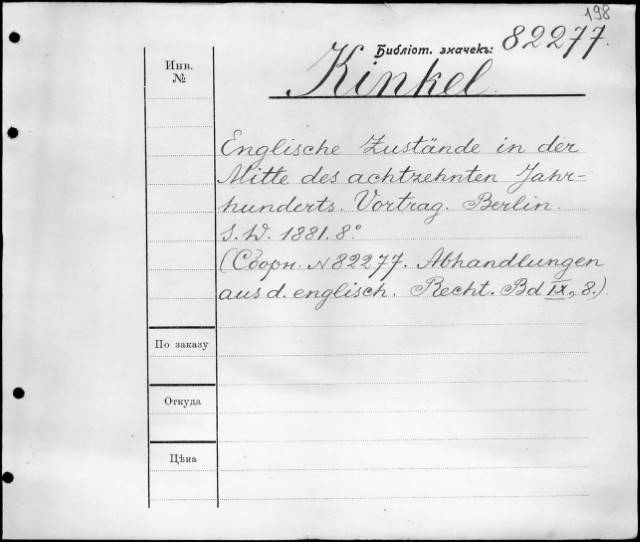 198
Библіот. значекъ: 82277.
Инв.
№
Kinkel.
Englische Zustände in der
Mitte des achtzehnten Jahr-
hunderts. Vortrag. Berlin.
S. W. 1881. 8°
(Сборн. N 82277. Abhandlungen
aus d. englisch. Recht. Bd IX, 8.).
По заказу
Откуда
Цѣна